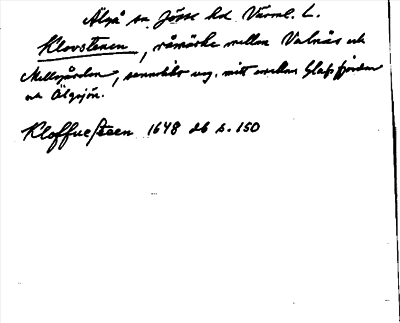 Älgå sn Jösse hd Värml. L.
Klovstenen, råmärke mellan Valnäs och
Mellgården, sannolikt ung. mitt emellan Glafsfjorden
och Älgsjön.
Kloffuesteen 1648 db s. 150